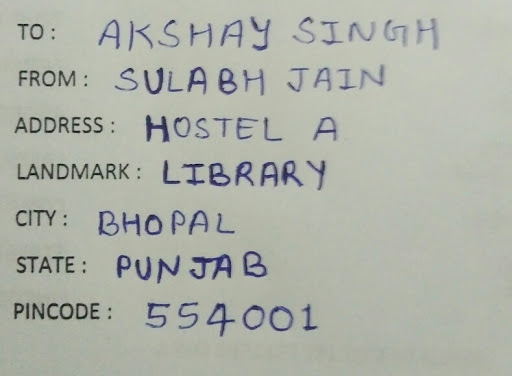 TO : AKSHAY SINGH
FROM : SULABH JAIN
ADDRESS : HOSTEL A
LANDMARK : LIBRARY
CITY : BHOPAL
STATE : PUNJAB
PINCODE : 554001